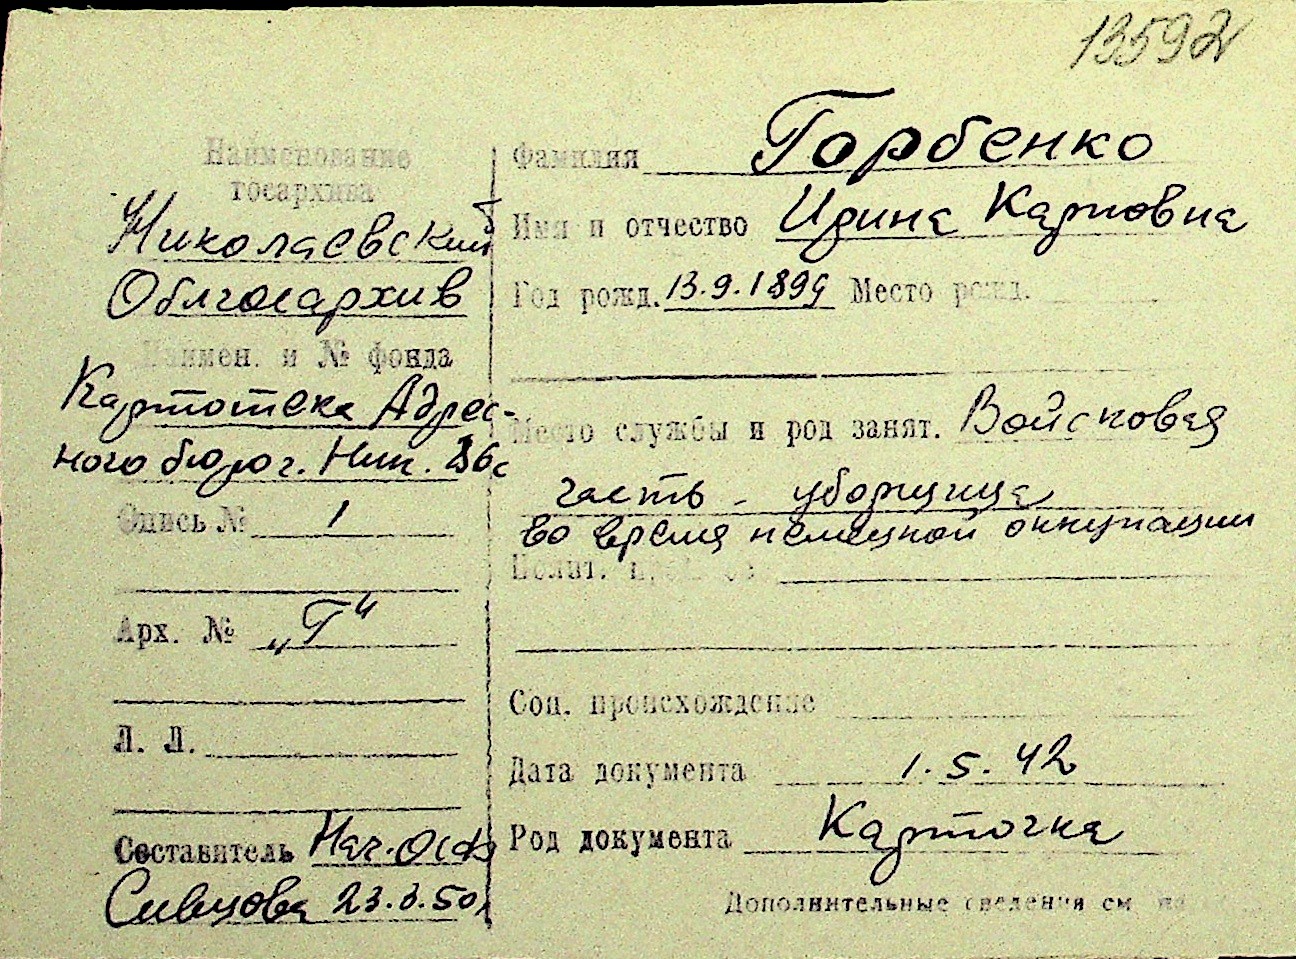 13592
Наименование
госархива
Николаевский
Облгосархив
Наимен. и № фонда
Картотека Адрес-
ного бюро г. Ник.
Опись № 1
Арх. № „Г“
Л. Л.
Составитель Нач. ОСФ
Сивцова 23.3.50
Фамилия Горбенко
Имя и отчество Ирина Карповна
Год рожд. 13.9.1899 Место рожд.
Место службы и род занят. Войсковая
часть - уборщица
во время немецкой оккупации
Полит.
Соц. происхождение
Дата документа 1.5.42
Род документа Карточка
Дополнительные сведения см